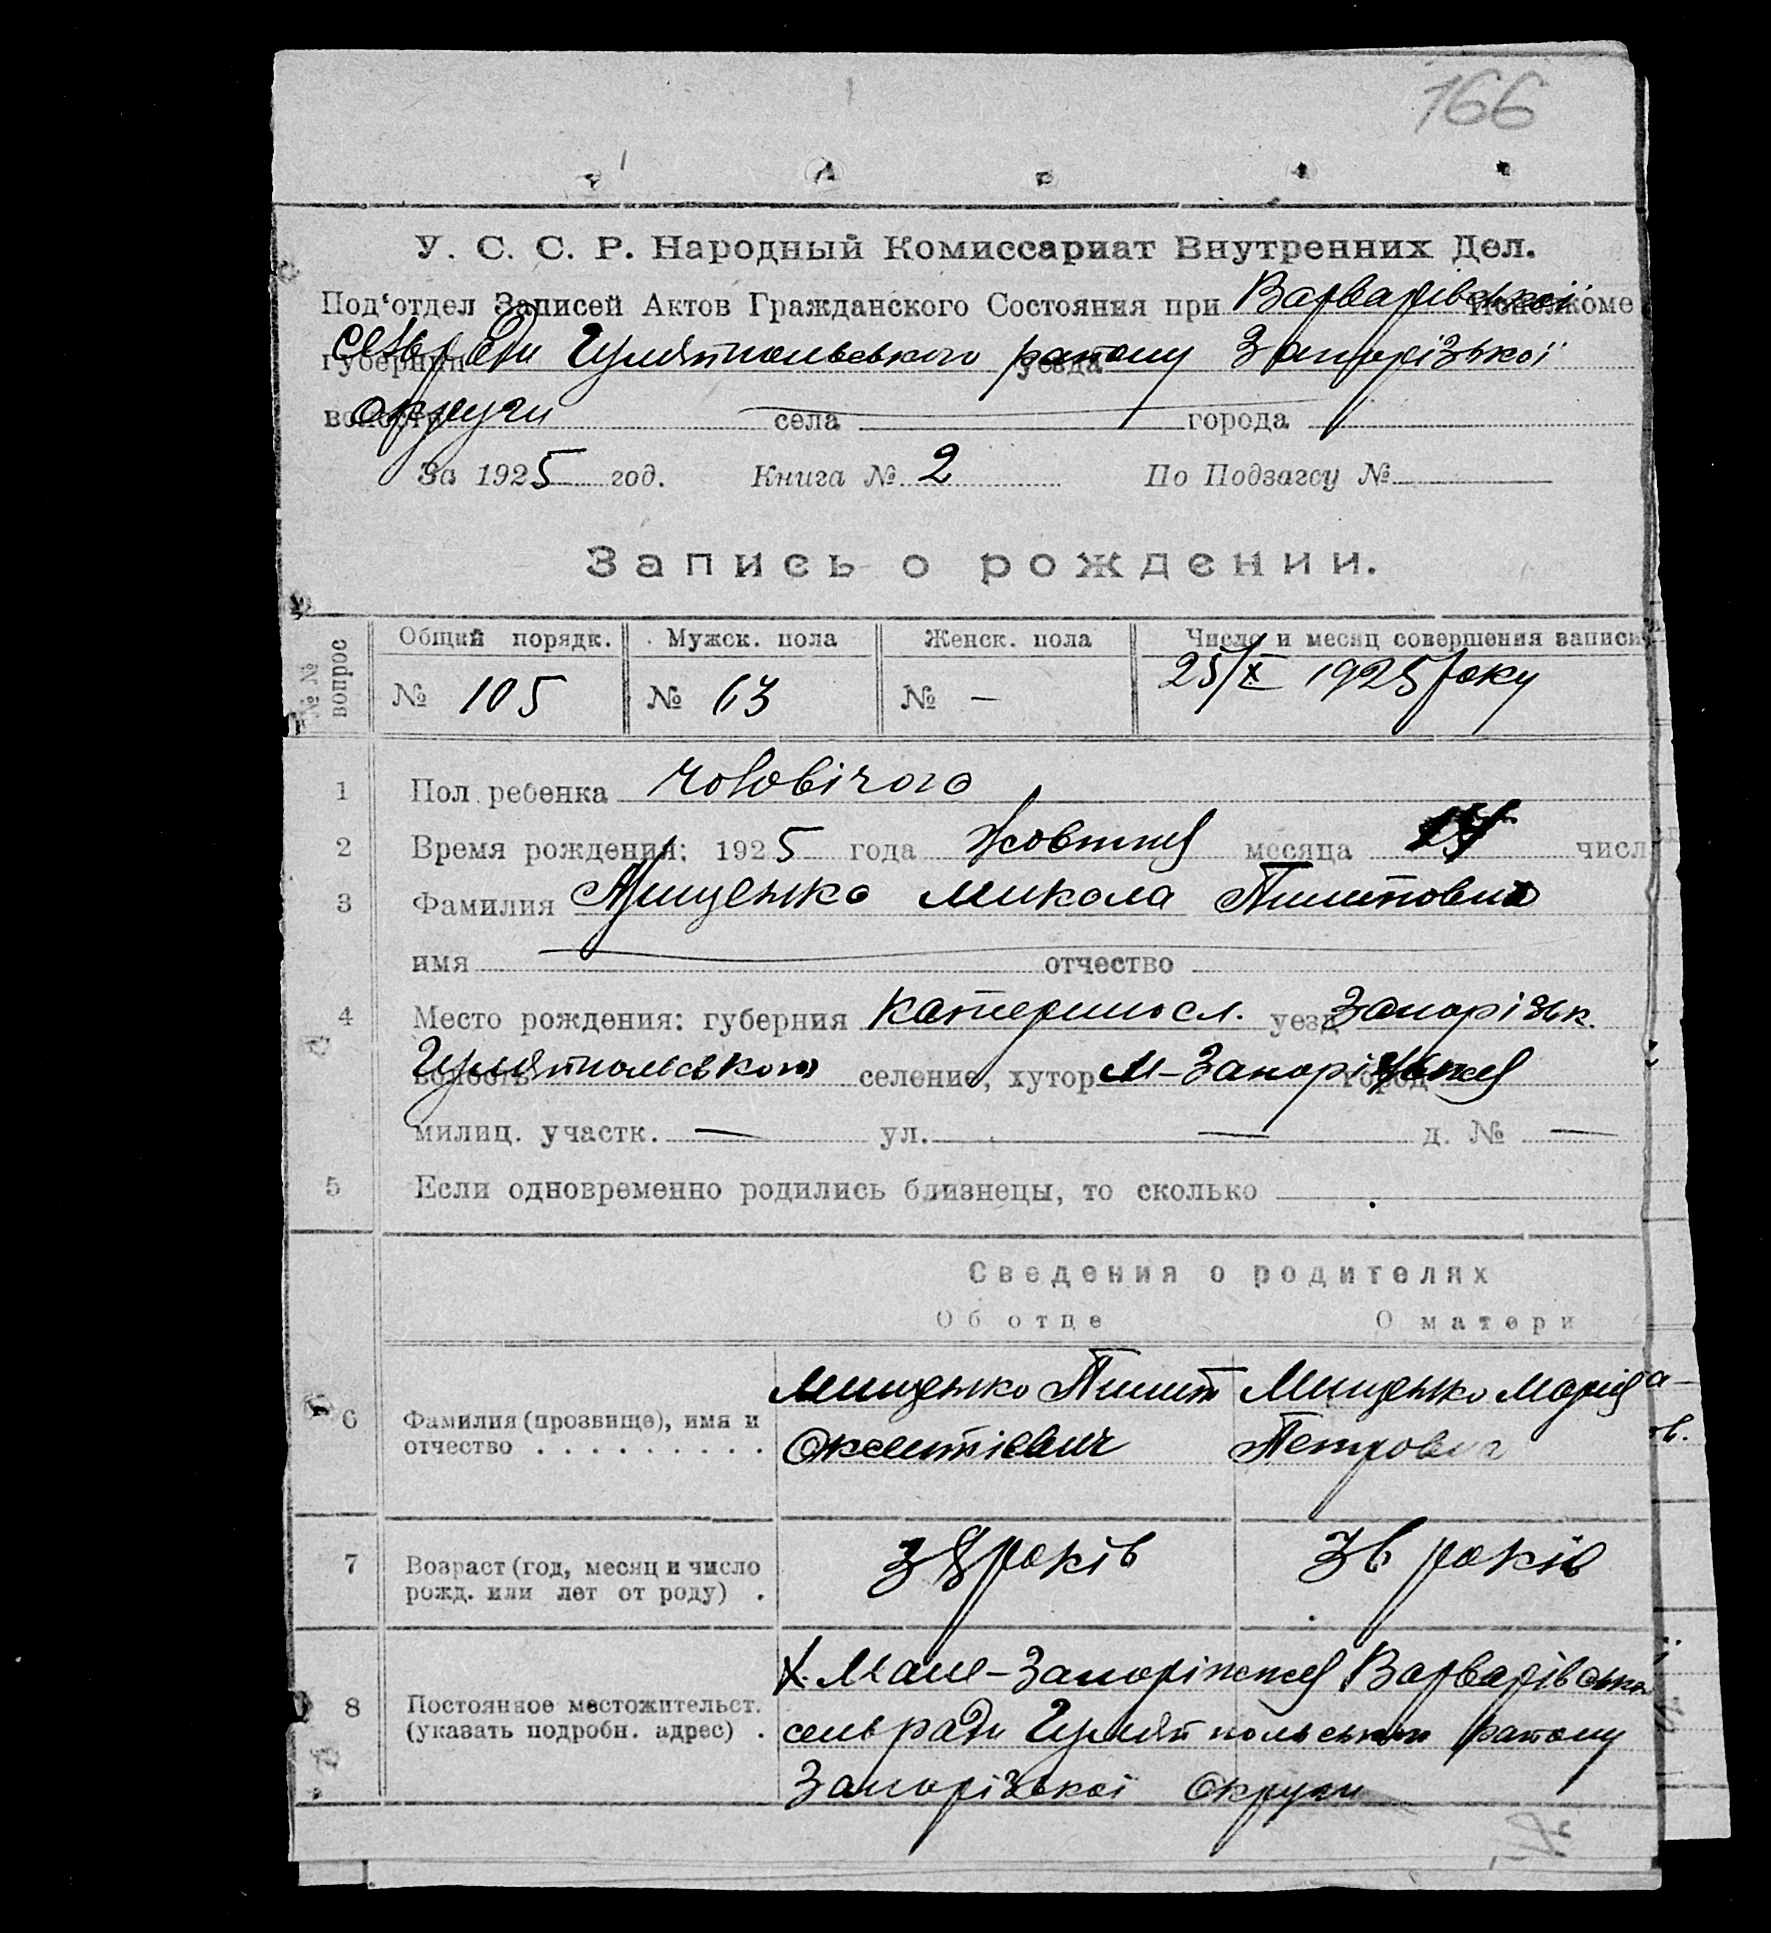 166
У. С. С. Р. Народный Комиссариат Внутренних Дел.
Под'отдел Записей Актов Гражданского Состояния при Варварівської Исполкоме
губернии сельради Гуляйпольського уезда району Запорізької
волости округи села города
За 1925 год. Книга № 2 По Подзагсу №
Запись о рождении.
№№ вопрос
Общий порядк. Мужск. пола Женск. пола Число и месяц совершения записи
№ 105 № 63 № — 25/X 1925 року
1 Пол ребенка чоловічого
2 Время рождения: 1925 года Жовтня месяца числ
3 Фамилия Мищенко Микола Пилипович
имя отчество
4 Место рождения: губерния Катериносл. уезд Запорізьк.
волость Гуляйпольського селение, хутор М-Запоріжжя город
милиц. участк. — ул. — д. № —
5 Если одновременно родились близнецы, то сколько
Сведения о родителях
Об отце О матери
Мищенко Пилип Мищенко Марія
6 Фамилия (прозвище), имя и
отчество . . . . . . . . . Оксентієвич Петровна
7 Возраст (год, месяц и число
рожд. или лет от роду) . 38 років 36 років
х. Мале-Запоріжжя Варварівської
8 Постоянное местожительст.
(указать подробн. адрес) . сельради Гуляйпольського району
Запорізької Округи